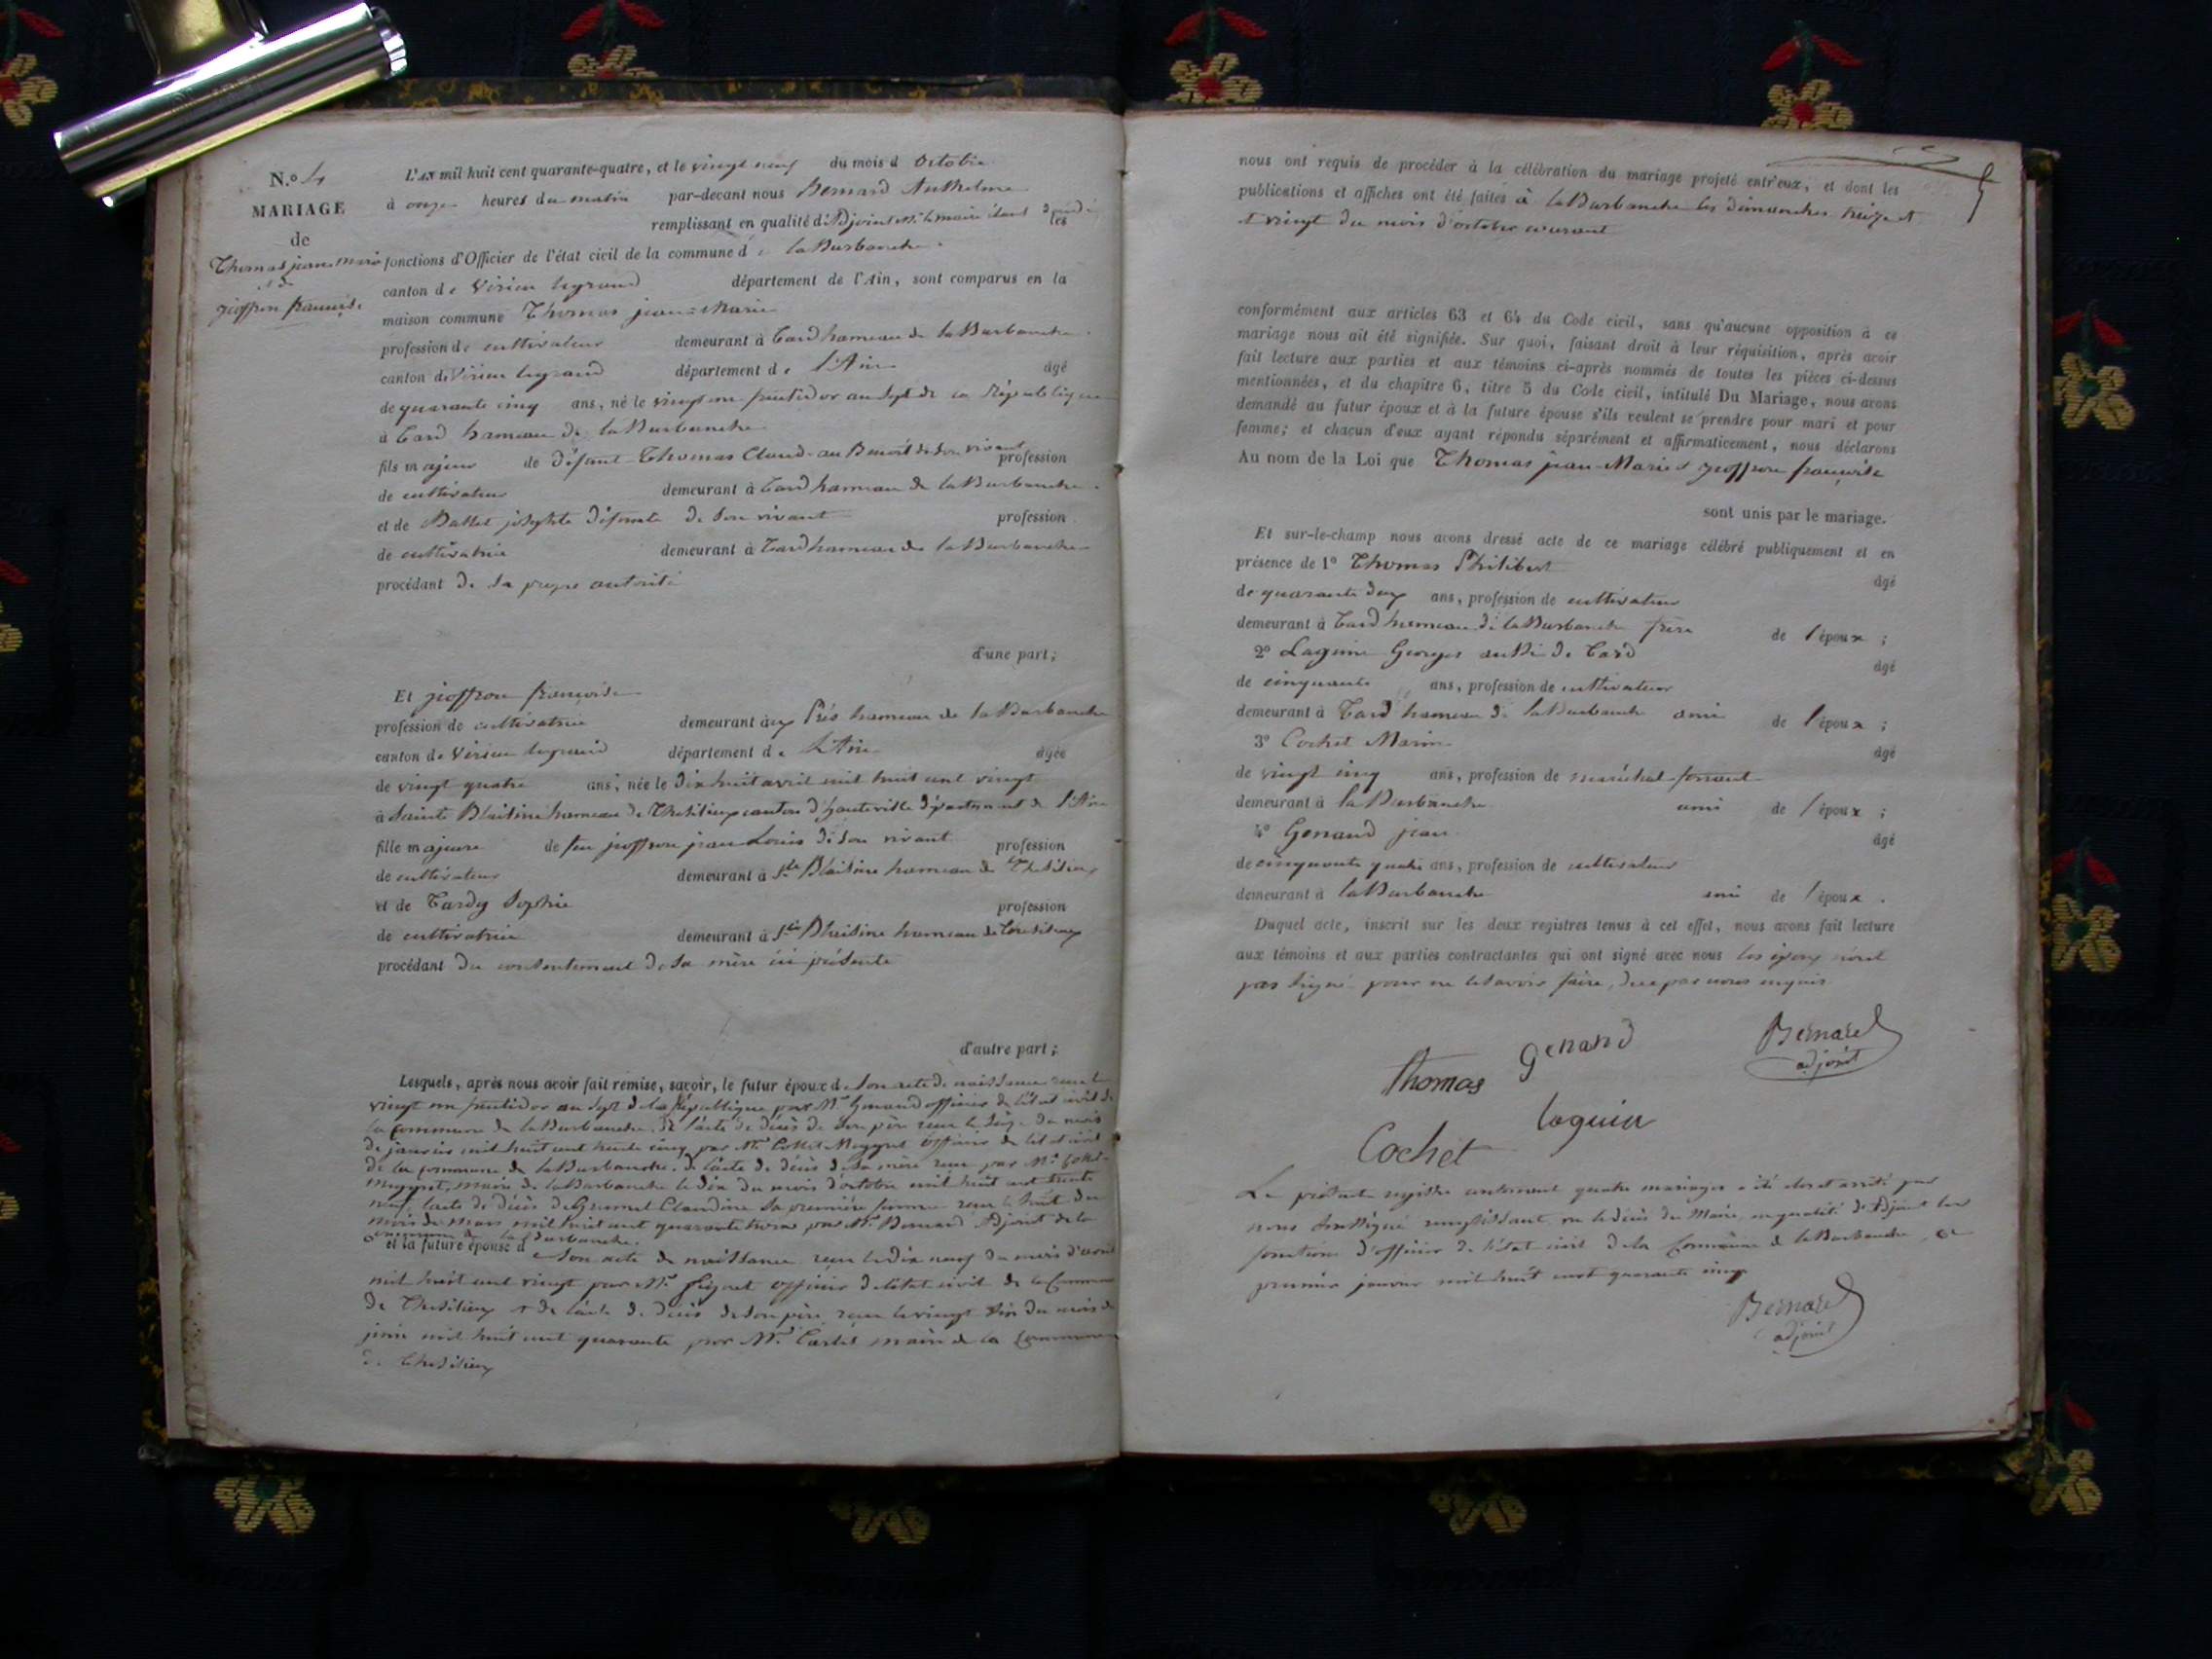 N.o 4
MARIAGE
de
Thomas jean-marie
et de
gioffron françoise
L'AN mil huit cent quarante-quatre, et le vingt neuf du mois d'Octobre
à onze heures du matin par-devant nous Bernard Anthelme
remplissant en qualité d'Adjoint Mr. le maire étant décédé les
fonctions d'Officier de l'état civil de la commune de la Burbanche
canton de Virieu legrand département de l'Ain, sont comparus en la
maison commune Thomas jean-Marie
profession de cultivateur demeurant à Tard hameau de la Burbanche
canton de Virieu legrand département de l'Ain âgé
de quarante cinq ans, né le vingt un fructidor an Sept de la République
à Tard hameau de la Burbanche
fils majeur de défunt Thomas Claude Benoit de son vivant profession
de cultivateur demeurant à Tard hameau de la Burbanche
et de Ballet josephte défunte de son vivant profession
de cultivatrice demeurant à Tard hameau de la Burbanche
procédant de sa propre autorité
d'une part;
Et gioffron françoise
profession de cultivatrice demeurant aux Prés hameau de la Burbanche
canton de Virieu legrand département de L'Ain âgée
de vingt quatre ans, née le dix huit avril mil huit cent vingt
à Sainte Blaisine hameau de Thesilieux canton d'hauteville département de l'Ain
fille majeure de feu joffron jean Louis de son vivant profession
de cultivateur demeurant à Ste Blaisine hameau de Thesilieux
et de Tardy Sophie profession
de cultivatrice demeurant à Ste Blaisine hameau de Thesilieux
procédant du contentement de sa mère ici présente
d'autre part;
Lesquels, après nous avoir fait remise, savoir, le futur époux de son acte de naissance reçu le
vingt un fructidor an Sept de la République par Mr. Genand officier de l'état civil de
la Commune de la Burbanche. de l'acte de décès de son père reçu le seize du mois
de janvier mil huit cent trente cinq par Mr. Collet-Meygret Officier de l'état civil
de la Commune de la Burbanche. de l'acte de décès de sa mère reçu par Mr. Collet-
Meygret, maire de la Burbanche le dix du mois d'octobre mil huit cent trente
neuf, l'acte de décès de Claudine sa première femme reçu le huit du
mois de mars mil huit cent quarante trois par Mr. Bernard Adjoint de la
commune de la Burbanche.
et la future épouse de son acte de naissance reçu le dix neuf du mois d'avril
mil huit cent vingt par Mr. officier de l'état civil de la Commune
de Thesilieux et de l'acte de décès de son père reçu le vingt six du mois de
juin mil huit cent quarante par Mr. maire de la Commune
de Thesilieux
nous ont requis de procéder à la célébration du mariage projeté entr'eux, et dont les
publications et affiches ont été faites à la Burbanche les dimanches treize et
et vingt du mois d'octobre courant
conformément aux articles 63 et 64 du Code civil, sans qu'aucune opposition à ce
mariage nous ait été signifiée. Sur quoi, faisant droit à leur réquisition, après avoir
fait lecture aux parties et aux témoins ci-après nommés de toutes les pièces ci-dessus
mentionnées, et du chapitre 6, titre 5 du Code civil, intitulé Du Mariage, nous avons
demandé au futur époux et à la future épouse s'ils veulent se prendre pour mari et pour
femme; et chacun d'eux ayant répondu séparément et affirmativement, nous déclarons
Au nom de la Loi que Thomas jean-Marie et gioffron françoise
sont unis par le mariage.
Et sur-le-champ nous avons dressé acte de ce mariage célébré publiquement et en
présence de 1o Thomas Philibert âgé
de quarante deux ans, profession de cultivateur
demeurant à Tard hameau de la Burbanche frère de l'époux;
2o Laguin Georges aussi de Tard âgé
de cinquante ans, profession de cultivateur
demeurant à Tard hameau de la Burbanche ami de l'époux;
3o Cochet Marin âgé
de vingt cinq ans, profession de maréchal-ferrant
demeurant à la Burbanche ami de l'époux;
4o Genand jean âgé
de cinquante quatre ans, profession de cultivateur
demeurant à la Burbanche ami de l'époux.
Duquel acte, inscrit sur les deux registres tenus à cet effet, nous avons fait lecture
aux témoins et aux parties contractantes qui ont signé avec nous les époux n'ont
pas signé pour ne le savoir faire, de ce par nous enquis
Genand
Bernard
adjoint
Thomas
laguin
Cochet
Le présent registre contenant quatre mariages a été clos et arrêté par
nous soussigné remplissant vu le décès du Maire, en qualité d'Adjoint les
fonctions d'officier de l'état civil de la Commune de la Burbanche, ce
premier janvier mil huit cent quarante cinq
Bernard
adjoint